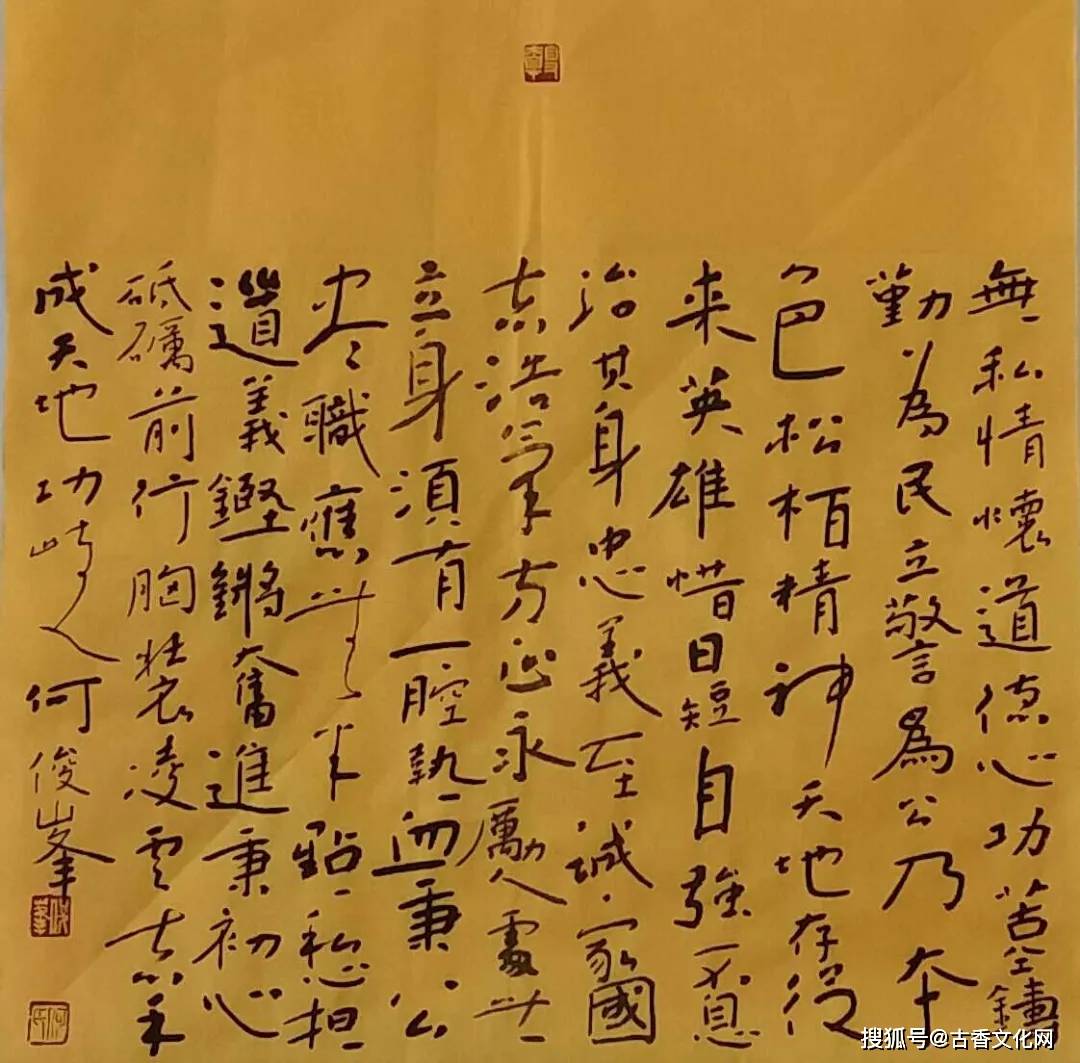 無私情懷道德心功
勤為民立警言為公乃本
色松柏精神天地存從
来英雄惜日短自強不息
治其身忠義至誠家國
志浩氣方正永勵人處世
立身須有一腔熱血秉公
尽職應無半點私心担
道義鏗鏘奮進秉初心
砥礪前行胸裝凌雲志
成天地功 何俊峯
搜狐号@古香文化网